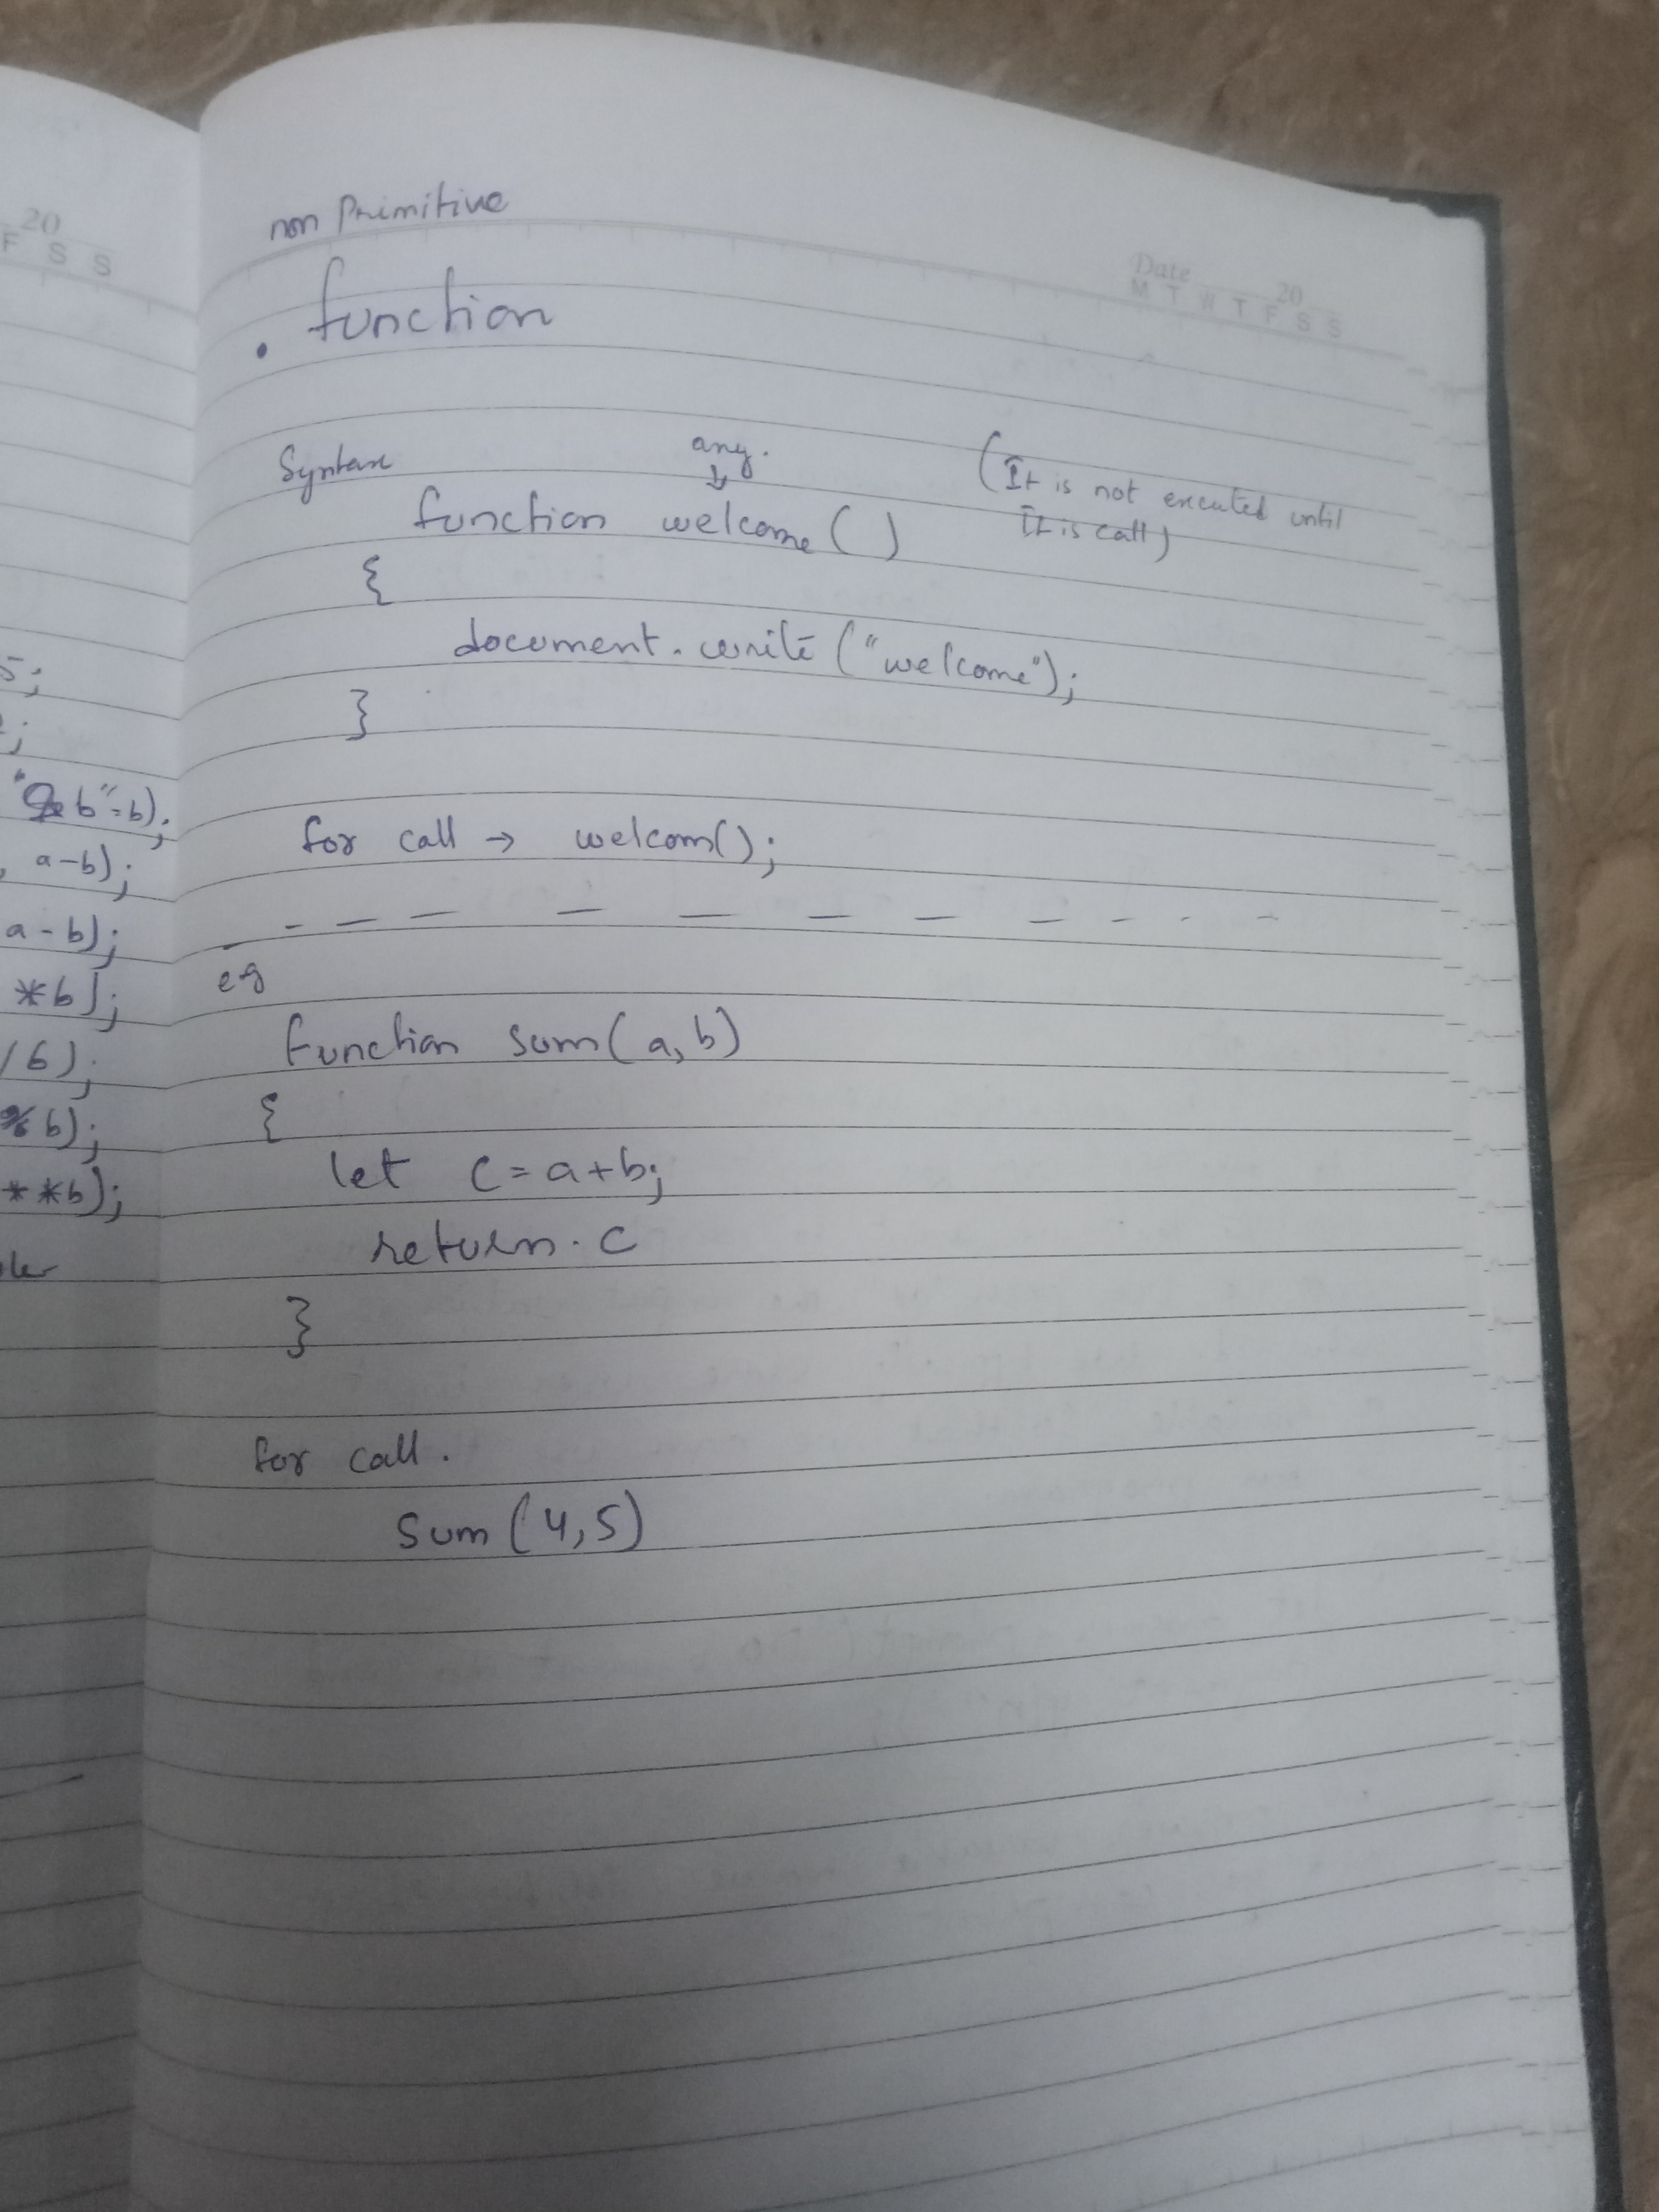 20
F S S
5;
;
"b"=b);
, a-b);
a-b);
*b);
/b);
%b);
**b);
non Primitive
Date 20
M T W T F S S
• function
Syntax
any.
↓
(It is not executed until
It is call)
function welcome()
{
document.write("welcome");
}
for call → welcom();
eg
function sum(a,b)
{
let c=a+b;
return. c
}
for call.
Sum(4,5)